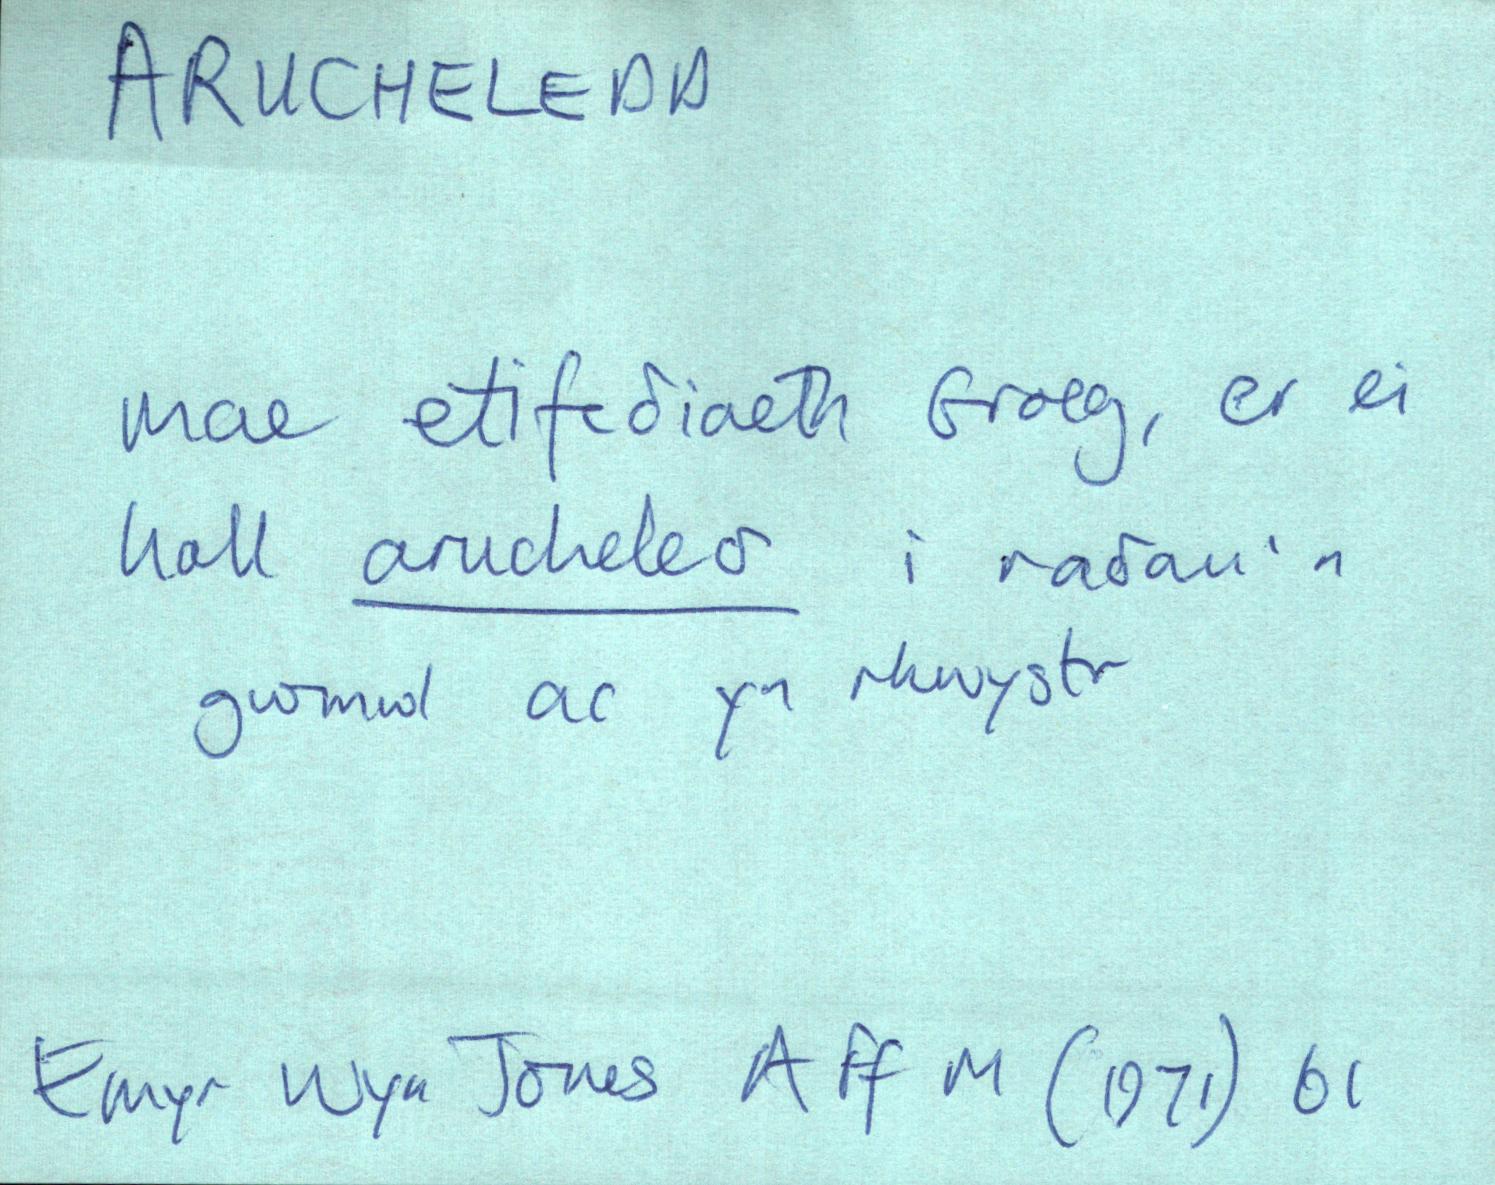 ARUCHELEDD
mae etifeδiaeth Groeg, er ei
holl arucheleδ i raδau'n
gwmwl ac yn rhwystr
Emyr Wyn Jones A Ff M (1971) 61